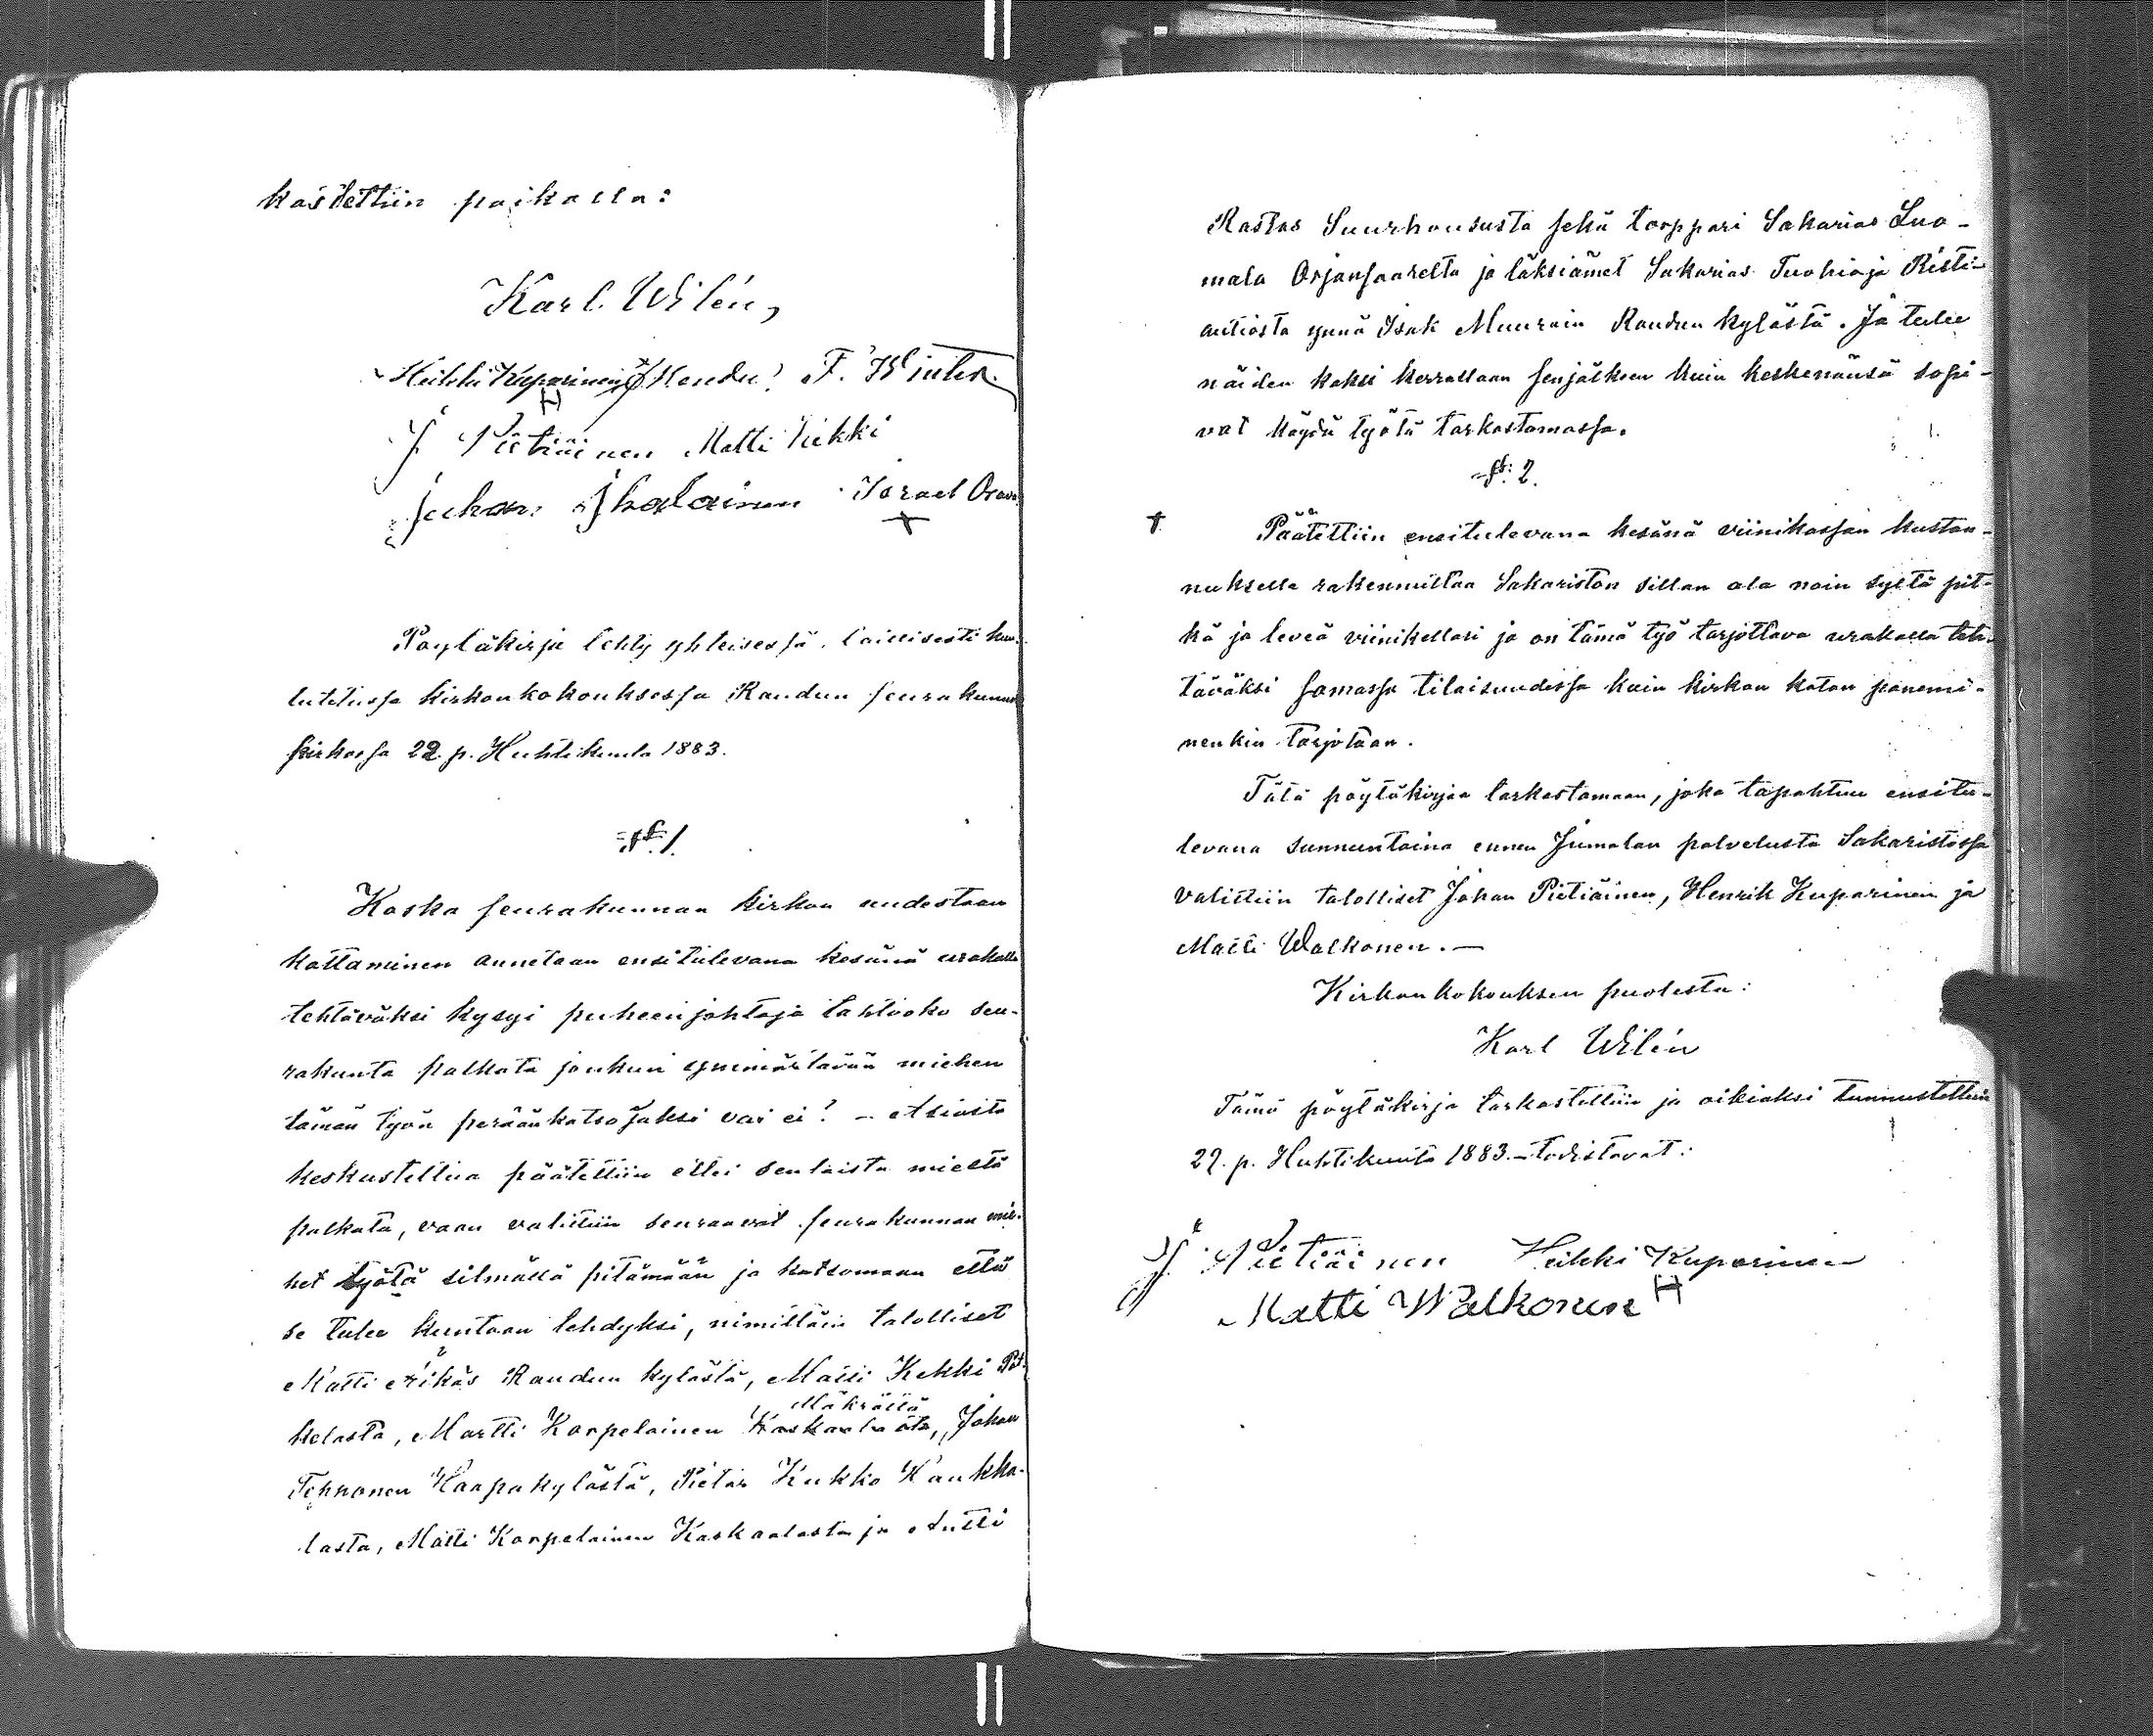 kastettiin paikalla:
Karl Wilén,
Heikki Kuparinen F. Winter
J Pietiäinen Matti Kekki
Juhan Ihalainen Israel Orava
Pöytäkirja tehty yhteisessä, laillisesti kuu-
lutetussa kirkonkokouksessa Raudun seurakunnan
kirkossa 22 p. Huhtikuuta 1883.
§ 1.
Koska seurakunnan kirkon uudestaan
kattaminen annetaan ensitulevana kesänä urakalla
tehtäväksi kysyi puheenjohtaja tahtooko seu-
rakunta palkata jonkun ymmärtävän miehen
tämän työn perään katsojaksi vai ei? - Asiasta
keskusteltua päätettiin ettei senlaista miestä
palkata, vaan valittiin seuraavat seurakunnan mie-
het työtä silmällä pitämään ja katsomaan että
se tulee kuntoon tehdyksi, nimittäin talolliset
Matti Äikäs Raudun kylästä, Matti Kekki Pöl-
Mäkrältä
kelästä, Martti Karpelainen Kaskaalasta, Johan
Tehnonen Haapakylästä, Pietar Kukko Kaukko-
lasta, Matti Karpelainen Kaskaalasta ja Antti
Rastas Suurhoususta sekä torppari Sakarias Luo-
mala Orjansaarelta ja läksiämet Sakarias Tuohioja Risti-
autiosta ynnä Isak Muurain Raudun kylästä. Ja tulee
näiden kaksi kerrallaan senjälkeen kuin keskenänsä sopi-
vat käydä työtä tarkastamassa.
§ 2.
Päätettiin ensitulevana kesänä viinikassan kustan-
nuksella rakennuttaa Sakariston sillan ala noin syltä pit-
kä ja leveä viinikellari ja on tämä työ tarjottava urakalla teh-
täväksi samassa tilaisuudessa kuin kirkon katon panemi-
nenkin tarjotaan.
Tätä pöytäkirjaa tarkastamaan, joka tapahtuu ensitu-
levana sunnuntaina ennen Jumalan palvelusta Sakaristossa
valittiin talolliset Johan Pietiäinen, Henrik Kuparinen ja
Matti Walkonen. —
Kirkonkokouksen puolesta:
Karl Wilén
Tämä pöytäkirja tarkastettiin ja oikiaksi tunnustettiin
29. p. Huhtikuuta 1883. - todistavat:
J Pietiäinen Heikki Kuparinen
Matti Walkonen